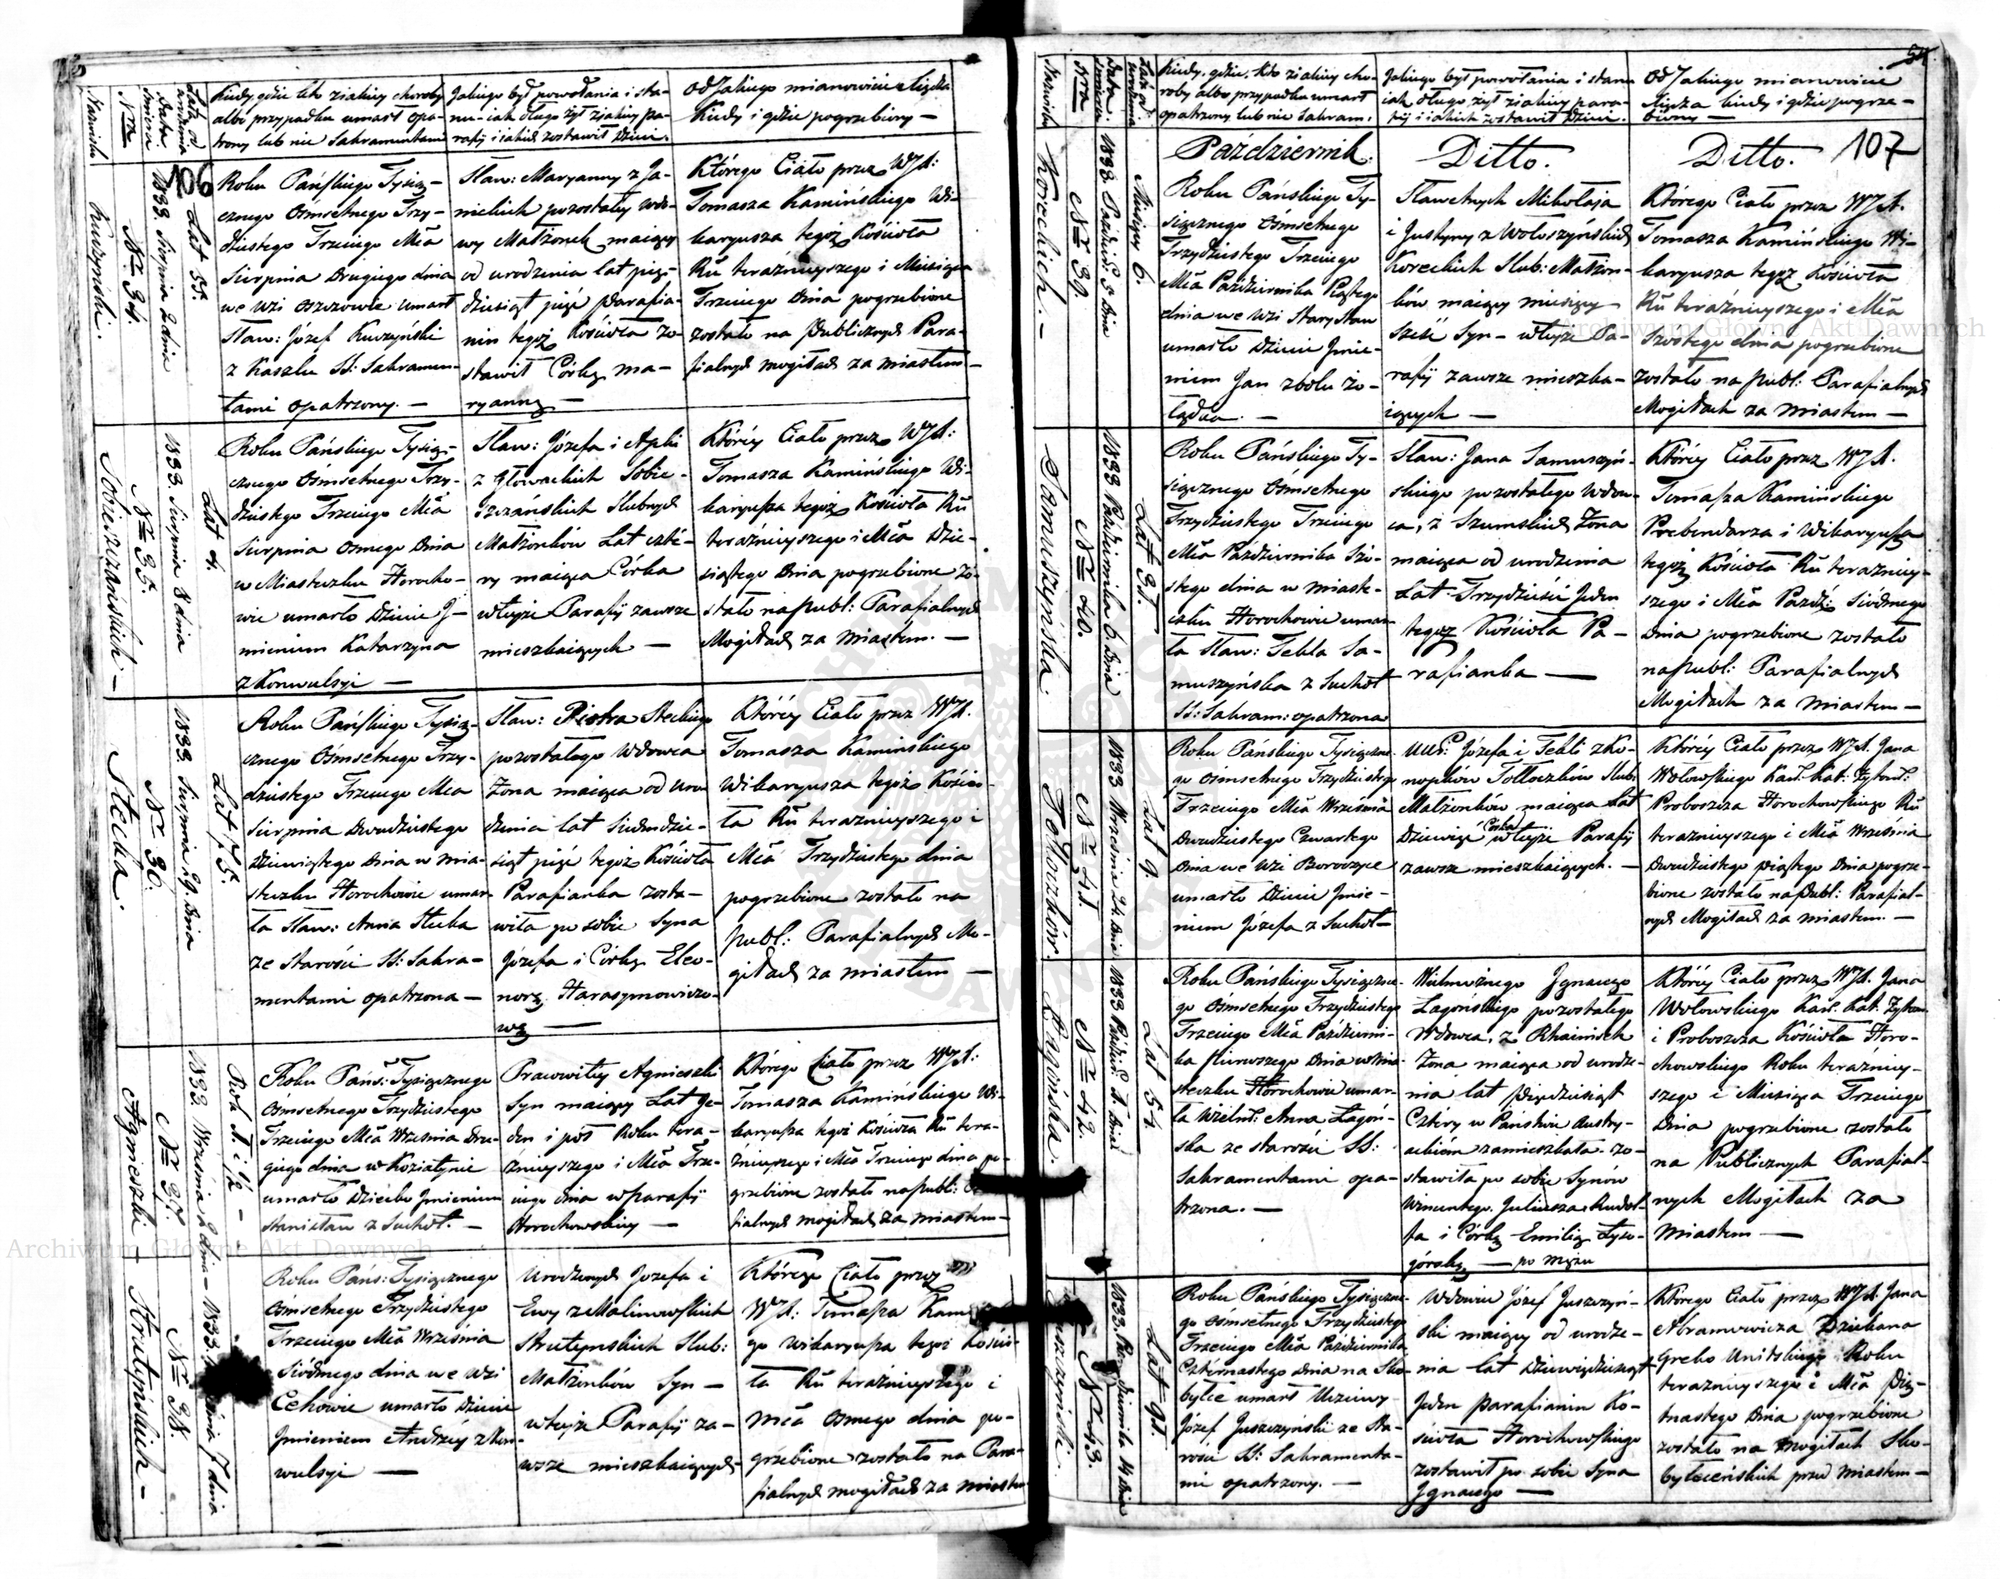 Nazwisko
Nro
Data śmierci
Lata od urodzenia
Kiedy, gdzie i iako ziakiey choroby
albo przypadku umarł opa-
trzony lub nie Sakramentami
Jakiego był powołania i sta-
nu iak długo żył z iakiey pa-
rafij i iakich zostawił dzieci.
Od Jakiego mianowicie Xiędza
Kiedy i gdzie pogrzebiony —
106
Kuczyński.
Nro 34.
1833 Sierpnia 2 dnia
Lat 55.
Roku Pańskiego Tysią-
cznego Ósmsetnego Trzy-
dziestego Trzeciego Mca
Sierpnia Drugiego dnia
we Wsi Oszczowie umarł
Sław: Józef Kuczyński
z Kaszlu SS: Sakramen-
tami opatrzony. —
Sław: Maryanny z Ja-
nickich pozostałey Wdo-
wy Małżonek maiący
od urodzenia lat pięć-
dziesiąt pięć Parafia-
nin tegoż Kościoła zo-
stawił Córkę Ma-
ryannę —
Którego Ciało przez WJX:
Tomasza Kamińskiego Wi-
karyusza tegoż Kościoła
Rū teraźnieyszego i Miesiąca
Trzeciego Dnia pogrzebione
zostało na Publicznych Para-
fialnych mogiłach za miastem —
Sobieszczańskich —
Nro 35.
1833 Sierpnia 8 dnia
Lat 4.
Roku Pańskiego Tysią-
cznego Ósmsetnego Trzy-
dziestego Trzeciego Mca
Sierpnia Ósmego Dnia
w Miasteczku Horocho-
wie umarło Dziecie J-
mieniem Katarzyna
z Konwulsyi —
Sław: Józefa i
z Głowackich Sobie-
szczańskich Slubnych
Małżonków Lat czte-
ry maiąca Córka
w teyże Parafij zawsze
mieszkaiących —
Którey Ciało przez WJX:
Tomasza Kamińskiego Wi-
karyusza tegoż Kościoła Rū
teraźnieyszego i Mca Dzie-
siątego Dnia pogrzebione zo-
stało na publ: Parafialnych
Mogiłach za Miastem. —
Stecka.
Nro 36.
1833. Sierpnia 29 Dnia
Lat 75.
Roku Pańskiego Tysią-
cznego Ósmsetnego Trzy-
dziestego Trzeciego Mca
Sierpnia Dwudziestego
Dziewiątego Dnia w Mia-
steczku Horochowie umar-
ła Sław: Anna Stecka
ze Starości SS: Sakra-
mentami opatrzona —
Sław: Piotra Steckiego
pozostałego Wdowca
Żona maiąca od uro-
dzenia lat siedmdzie-
siąt pięć tegoż Kościoła
Parafianka zosta-
wiła po sobie Syna
Józefa i Córkę Eleo-
norę Harasymowiczo-
wę —
Którey Ciało przez WJX.
Tomasza Kamińskiego
Wikaryusza tegoż Kościo-
ła Rū teraźnieyszego i
Mca Trzydziestego dnia
pogrzebione zostało na
publ: Parafialnych Mo-
giłach za miastem —
Agnieszki —
Nro 37.
1833. Września 2 dnia —
Rok 1. i 1/2 —
Roku Pańs: Tysiącznego
Ósmsetnego Trzydziestego
Trzeciego Mca Września Dru-
giego dnia w Koziatynie
umarło Dziecko Jmieniem
Stanisław z Suchot. —
Pracowitey Agnieszki
Syn maiący Lat Je-
den i pół Roku tera-
źnieyszego i Mca Trze-
ciego dnia w Parafij
Horochowskiey —
Którego Ciało przez WJX:
Tomasza Kamińskiego Wi-
karyusza tegoż Kościoła Rū tera-
źnieyszego i Mca Trzeciego dnia po-
grzebione zostało na publ:
fialnych mogiłach za miastem —
Strutyńskich —
Nro 38.
1833. Września 7 dnia
Roku Pańs: Tysiącznego
Ósmsetnego Trzydziestego
Trzeciego Mca Września
Siódmego dnia we Wsi
Cehowie umarło Dziecie
Jmieniem Andrzey z Kon-
wulsyi —
Urodzonych Jozefa i
Ewy z Malinowskich
Strutynskich Slub:
Małżonków Syn —
w teyże Parafij za-
wsze mieszkaiących —
Którego Ciało przez
WJX: Tomasza Kam
go Wikaryusza tegoż Kościo-
ła Rū teraźnieyszego i
Mca Ósmego dnia po-
grzebione zostało na Para-
fialnych mogiłach za miastem
54
Nazwiska
Nro
Data śmierci
Lata od urodzenia
Kiedy, gdzie, kto z iakiey cho-
roby albo przypadku umarł
opatrzony lub nie Sakram:
Jakiego był powołania i stanu
iak długo żył z iakiey para-
fij i iakich zostawił Dzieci.
Od Jakiego mianowicie
Xiędza kiedy i gdzie pogrze-
biony —
Październik.
Ditto.
Ditto.
107
Koreckich. —
Nro 39.
1833. Paździer: 5 Dnia
Miesięcy 6.
Roku Pańskiego Ty-
siącznego Ósmsetnego
Trzydziestego Trzeciego
Mca Października Piątego
dnia we Wsi Stary Staw
umarło Dziecie Jmie-
niem Jan z bolu żo-
łądka. —
Sławetnych Mikołaja
i Justyny z Wołoszyńskich
Koreckich Slub: Małżon-
ków maiący miesięcy
Sześć Syn — w teyże Pa-
rafij zawsze mieszka-
iących —
Którego Ciało przez WJX.
Tomasza Kamińskiego Wi-
karyusza tegoż Kościoła
Rū teraźnieyszego i Mca
Szóstego dnia pogrzebione
zostało na publ: Parafialnych
Mogiłach za Miastem —
Samuszyńska.
Nro 40.
1833 Października 6. Dnia
Lat 31.
Roku Pańskiego Ty-
siącznego Ósmsetnego
Trzydziestego Trzeciego
Mca Października Szó-
stego dnia w miaste-
czku Horochowie umar-
ła Sław: Tekla Sa-
muszyńska z Suchot
SS: Sakram: opatrzona
Sław: Jana Samuszyń-
skiego pozostałego Wdow-
ca, z Szumskich Żona
maiąca od urodzenia
Lat Trzydzieści Jeden
tegoż Kościoła Pa-
rafianka —
Którey Ciało przez WJX.
Tomasza Kamińskiego
Prebendarza i Wikaryusza
tegoż Kościoła Rū teraźniey-
szego i Mca Paźdź: Siódmego
Dnia pogrzebione zostało
na publ: Parafialnych
Mogiłach za Miastem —
Tołłoczków.
Nro 41.
1833 Września 24 Dnia
Lat 9.
Roku Pańskiego Tysiączne-
go Ósmsetnego Trzydziestego
Trzeciego Mca Września
Dwudziestego Czwartego
Dnia we Wsi Boroczyce
umarło Dziecie Jmie-
niem Józefa z Suchot —
Józefa i Tekli z Ko-
nopków Tołłoczków Slub:
Małżonków maiąca Lat
Dziewięć Córka w teyże Parafij
zawsze mieszkaiących. —
Którey Ciało przez WJX. Jana
Wołowskiego Kan: Kat: Żytom:
Proboszcza Horochowskiego Rū
teraźnieyszego i Mca Września
Dwudziestego Piątego Dnia pogrze-
bione zostało na Publ: Parafial-
nych Mogiłach za miastem. —
Łagońska.
Nro 42.
1833 Paździer: 1. Dnia
Lat 54.
Roku Pańskiego Tysiączne-
go Ósmsetnego Trzydziestego
Trzeciego Mca Październi-
ka Pierwszego Dnia w Mia-
steczku Horochowie umar-
ła Wielm: Anna Łagoń-
ska ze starości SS:
Sakramentami opa-
trzona. —
Wielmożnego Jgnacego
Łagońskiego pozostałego
Wdowca, z Rhainisch
Żona maiąca od urodze-
nia lat Pięćdziesiąt
Cztery w Państwie Austry-
ackiém zamieszkała. zo-
stawiła po sobie Synów
Wincentego, Juliusza, Rudol-
fa i Córkę Emilię Łyso-
górską — po mężu
Którey Ciało przez WJX. Jana
Wołowskiego Kan: Kat: Żytom:
i Proboszcza Kościoła Horo-
chowskiego Roku teraźniey-
szego i Miesiąca Trzeciego
Dnia pogrzebione zostało
na Publicznych Parafial-
nych Mogiłach za
Miastem —
Juszczyński.
Nro 43.
1833. Października 14 Dnia
Lat 91.
Roku Pańskiego Tysiączne-
go Ósmsetnego Trzydziestego
Trzeciego Mca Października
Czternastego Dnia na Sko-
bełce umarł Uczciwy
Józef Juszczyński ze Sta-
rości SS: Sakramenta-
mi opatrzony. —
Wdowiec Józef Juszczyń-
ski maiący od urodze-
nia lat Dziewięćdziesiąt
Jeden Parafianin Ko-
ścioła Horochowskiego
zostawił po sobie Syna
Jgnacego —
Którego Ciało przez WJX Jana
Abramowicza Dziekana
Greko Unitskiego Roku
teraźnieyszego i Mca Pię-
tnastego Dnia pogrzebione
zostało na Mogiłach Sko-
bełeckich przed miastem —
Archiwum Główne Akt Dawnych
Archiwum Główne Akt Dawnych